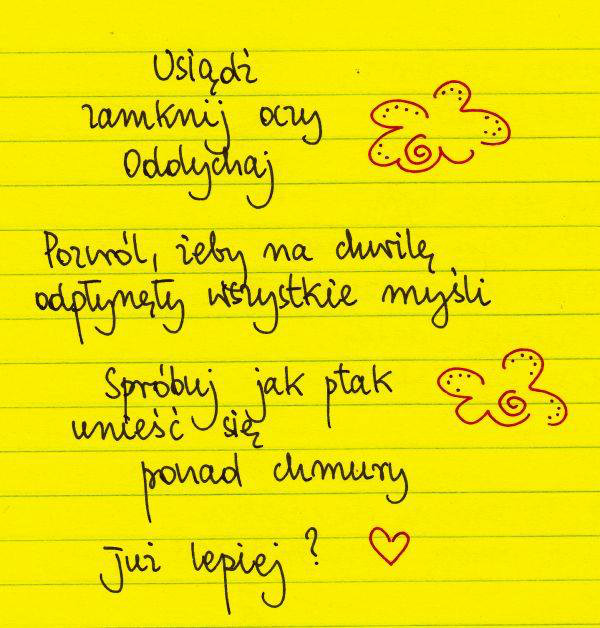 Usiądź
zamknij oczy
Oddychaj
Pozwól, żeby na chwilę
odpłynęły wszystkie myśli
Spróbuj jak ptak
unieść się
ponad chmury
Już lepiej?